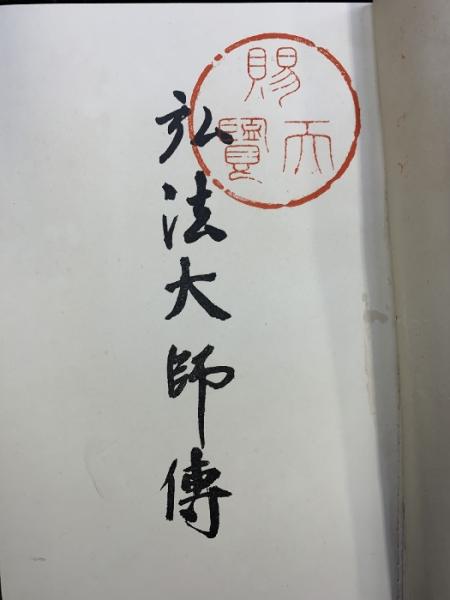 賜天覽
弘法大師傳